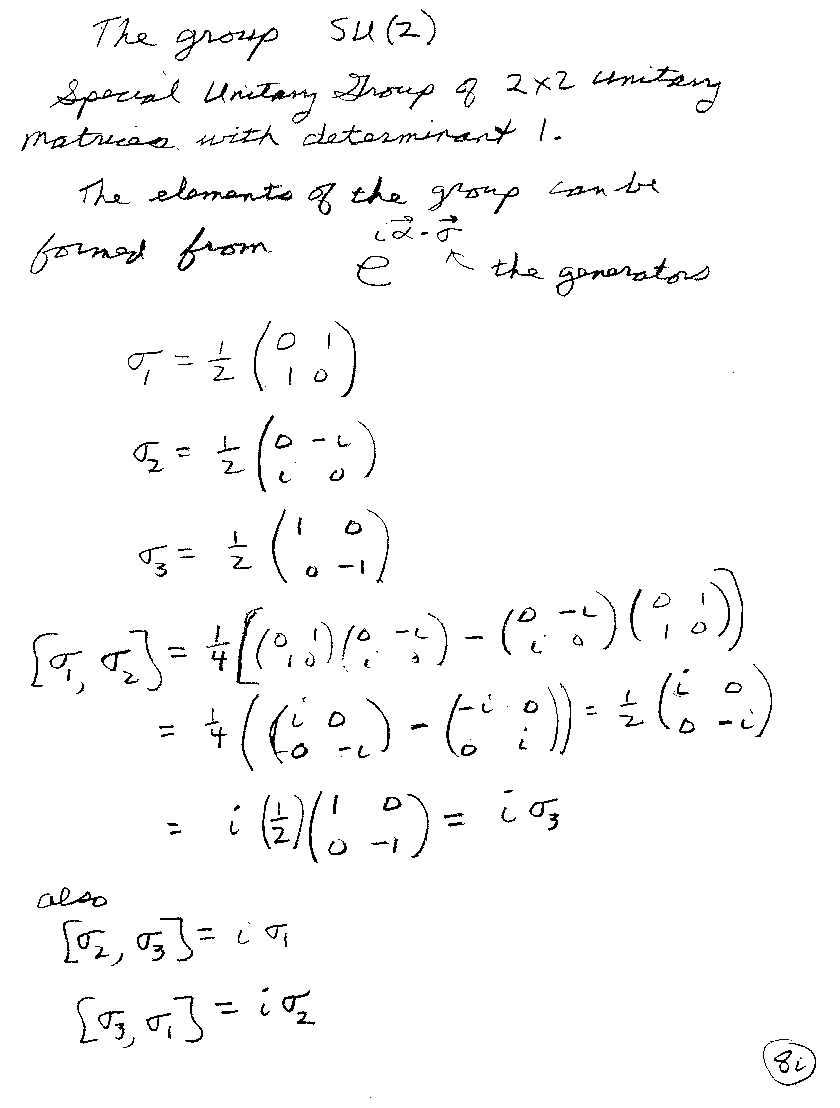 The group SU(2)
Special Unitary Group of 2×2 unitary
matrices with determinant 1.
The elements of the group can be
formed from e^{i\vec{α}·\vec{σ}} ← the generators
σ₁ = 1/2 (0 1; 1 0)
σ₂ = 1/2 (0 -i; i 0)
σ₃ = 1/2 (1 0; 0 -1)
[σ₁, σ₂] = 1/4 [(0 1; 1 0)(0 -i; i 0) - (0 -i; i 0)(0 1; 1 0)]
= 1/4 ((i 0; 0 -i) - (-i 0; 0 i)) = 1/2 (i 0; 0 -i)
= i (1/2)(1 0; 0 -1) = i σ₃
also
[σ₂, σ₃] = i σ₁
[σ₃, σ₁] = i σ₂
8i